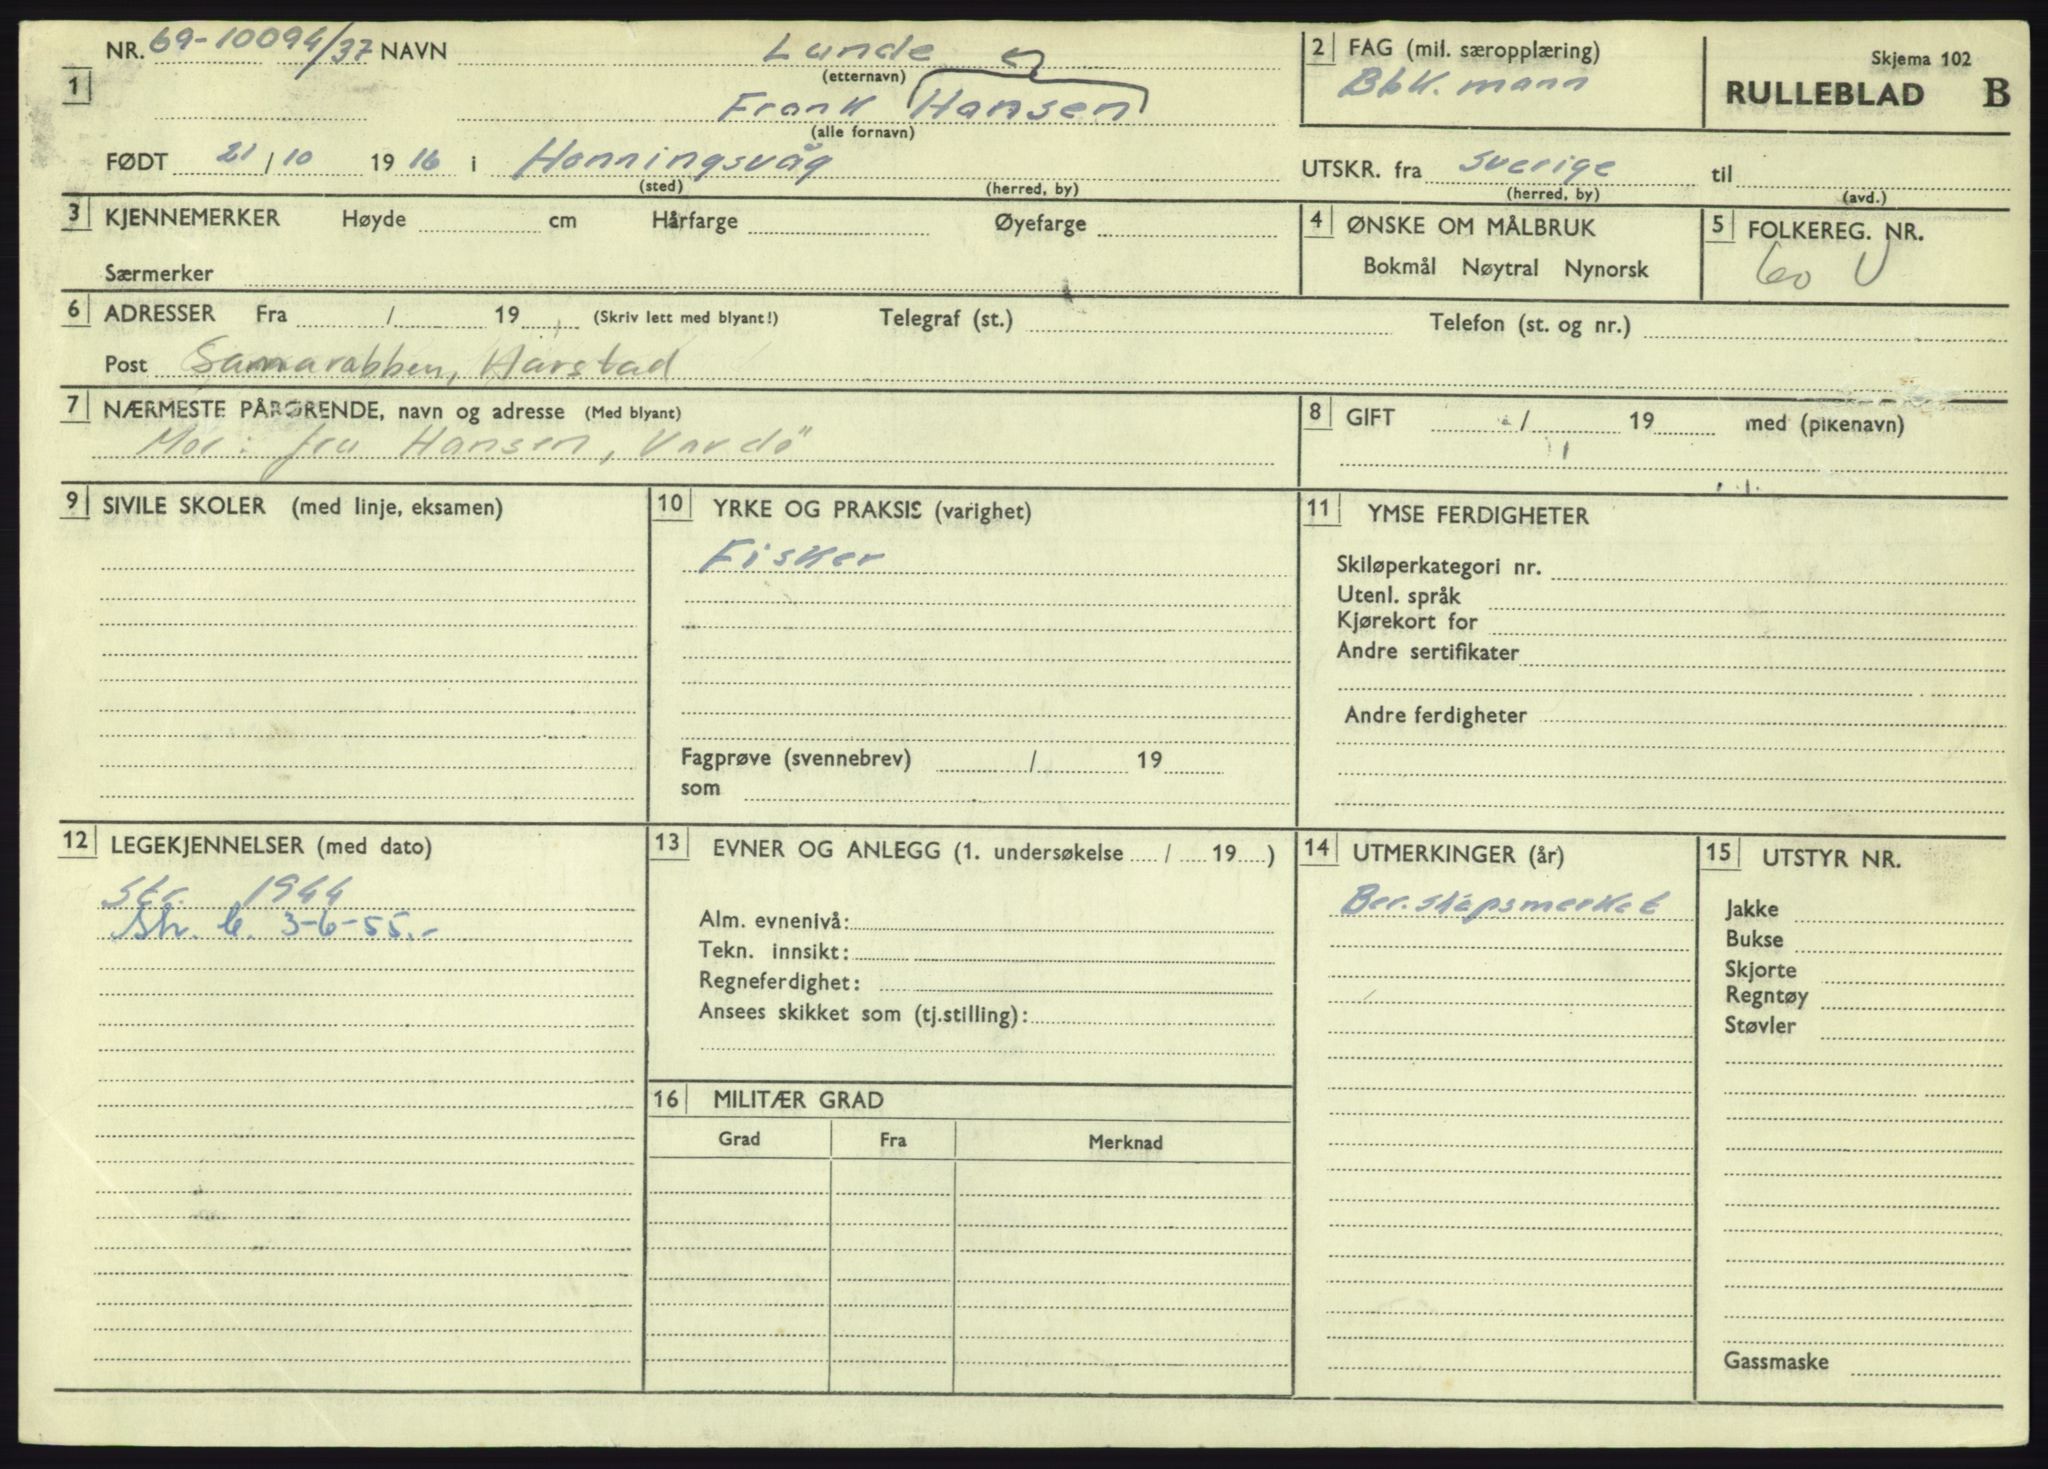 1 NR. 69-10094/37 NAVN Lunde
(etternavn)
Frank Hansen
(alle fornavn)
FØDT 21/10 1916 i Honningsvåg
(sted) (herred, by)
2 FAG (mil. særopplæring)
Bbk. mann
Skjema 102
RULLEBLAD B
UTSKR. fra Sverige til
(herred, by) (avd.)
3 KJENNEMERKER Høyde cm Hårfarge Øyefarge
Særmerker
4 ØNSKE OM MÅLBRUK
Bokmål Nøytral Nynorsk
5 FOLKEREG. NR.
60 U
6 ADRESSER Fra / 19 (Skriv lett med blyant!) Telegraf (st.) Telefon (st. og nr.)
Post Samarabben, Harstad
7 NÆRMESTE PÅRØRENDE, navn og adresse (Med blyant)
Mor: fru Hansen, Vardö
8 GIFT / 19 med (pikenavn)
9 SIVILE SKOLER (med linje, eksamen)
10 YRKE OG PRAKSIS (varighet)
Fisker
Fagprøve (svennebrev) / 19
som
11 YMSE FERDIGHETER
Skiløperkategori nr.
Utenl. språk
Kjørekort for
Andre sertifikater
Andre ferdigheter
12 LEGEKJENNELSER (med dato)
Str. 1944
Str. C. 3-6-55.-
13 EVNER OG ANLEGG (1. undersøkelse / 19 )
Alm. evnenivå:
Tekn. innsikt:
Regneferdighet:
Ansees skikket som (tj.stilling):
14 UTMERKINGER (år)
Ber.skapsmerket
15 UTSTYR NR.
Jakke
Bukse
Skjorte
Regntøy
Støvler
Gassmaske
16 MILITÆR GRAD
Grad Fra Merknad